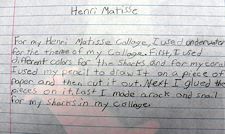 Henri Matisse
For my Henri Matisse Collage, I used underwater
for the theme of my Collage. First, I used
different colors for the sharks and for my coral
I used my pencil to draw it on a piece of
paper and then cut it out. Next I glued the
pieces on it. Last I made a rock and snail
for my sharks in my collage.